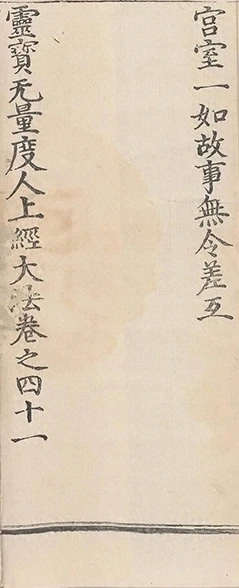 宫室一如故事無令差互
靈寳无量度人上經大法卷之四十一